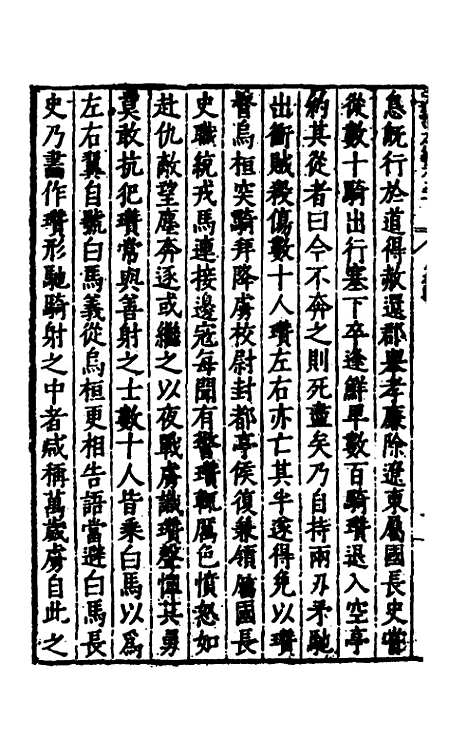 息既行於道得赦還郡舉孝廉除遼東屬國長史嘗
從數十騎出行塞下卒逢鮮卑數百騎瓚退入空亭
約其從者曰今不奔之則死盡矣乃自持兩刃矛馳
出衝賊殺傷數十人瓚左右亦亡其半遂得免以瓚
督烏桓突騎拜降虜校尉封都亭侯復兼領屬國長
史職統戎馬連接邊寇每聞有警瓚輒厲色憤怒如
赴仇敵望塵奔逐或繼之以夜戰虜識瓚聲憚其勇
莫敢抗犯瓚常與善射之士數十人皆乘白馬以為
左右翼自號白馬義從烏桓更相告語當避白馬長
史乃畵作瓚形馳騎射之中者咸稱萬歲虜自此之